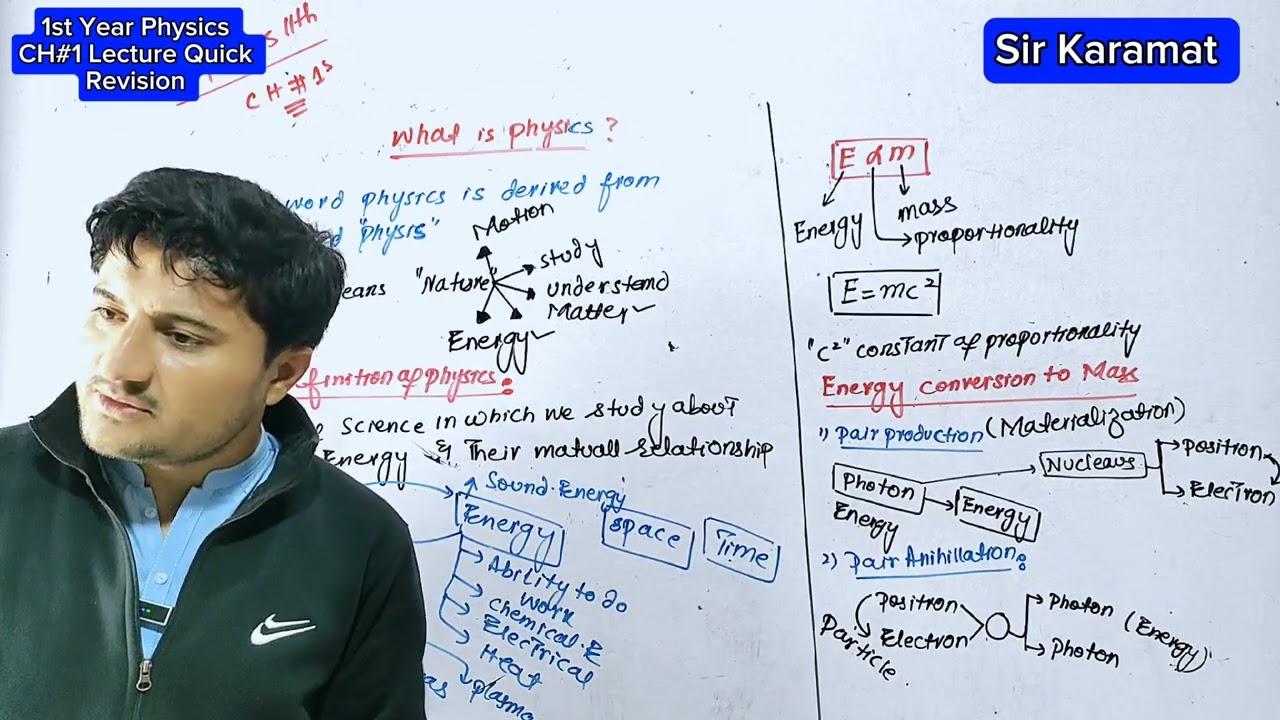 1st Year Physics
CH#1 Lecture Quick
Revision
Sir Karamat
11th
CH # 1s
What is physics ?
word physics is derived from
"physis"
Motion
study
"Nature"
understand
Matter
Energy
finition of physics :
science in which we study about
Energy & Their matuall relationship
Sound Energy
Energy
space
Time
Ability to do
work
chemical.E
Electrical
Heat
plasma
E α m
Energy
mass
proportionality
E = mc²
"c²" constant of proportionality
Energy conversion to Mass
1) pair production (Materialization)
Photon
Energy
Energy
Nucleaus
Positron
Electron
2) Pair Anihillation :
Positron
Electron
Particle
Photon (Energy)
Photon